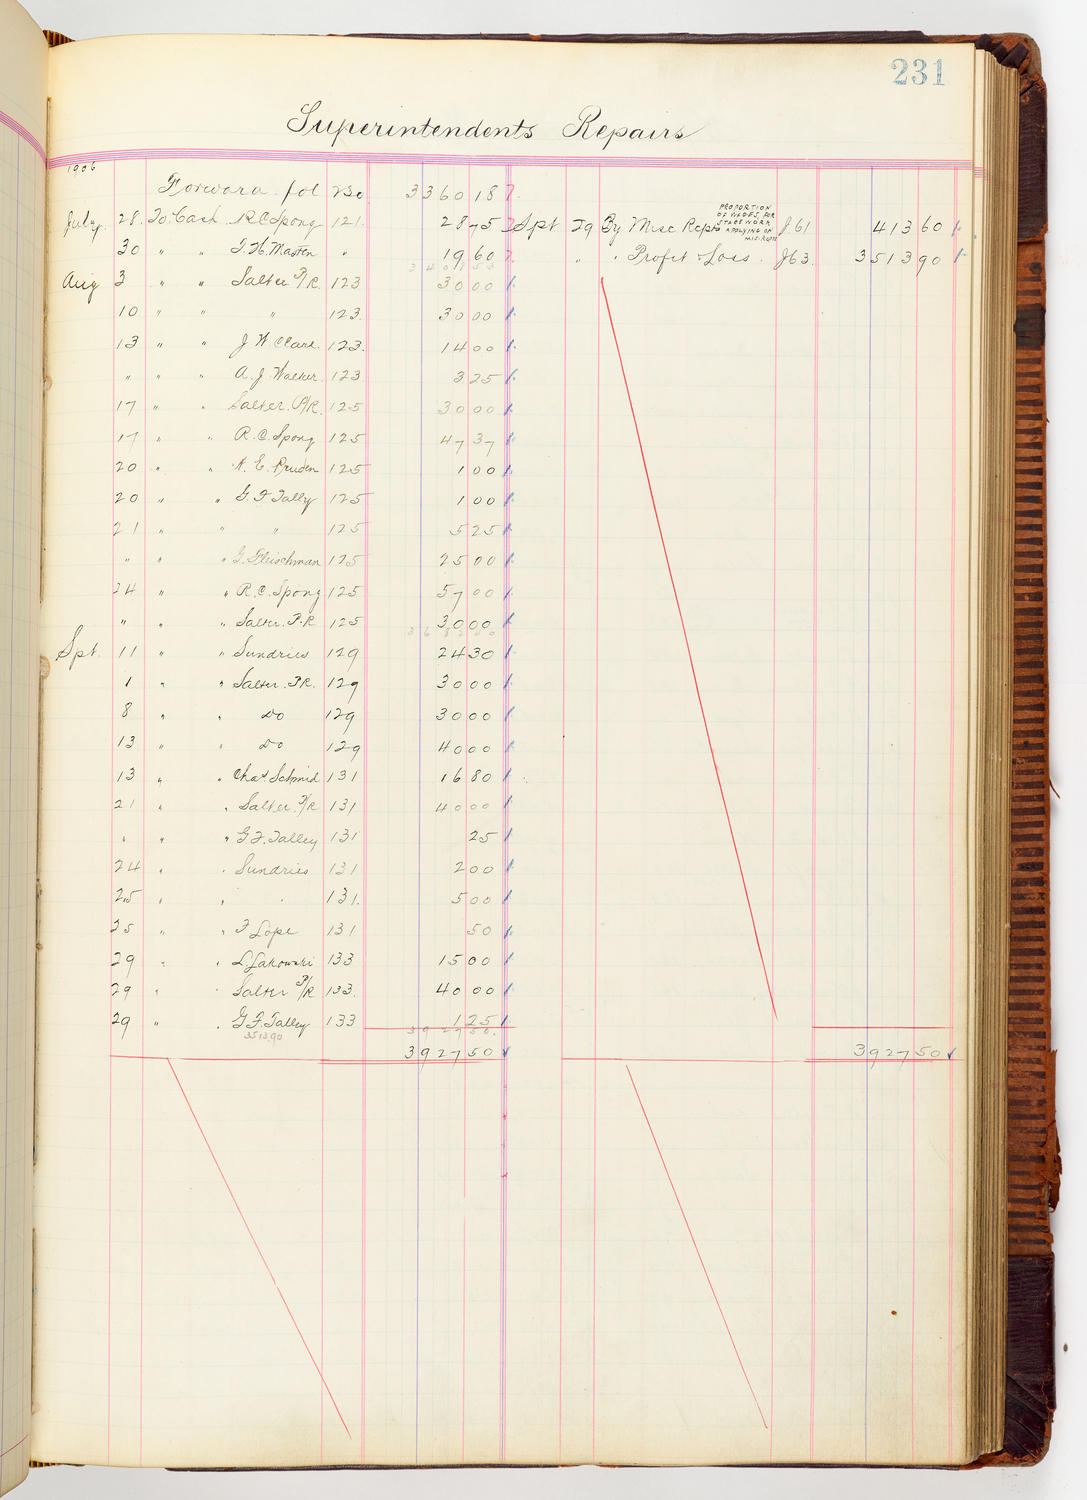 231
Superintendents Repairs
1906
Forward fol 230 3360 18
July 28 To Cash R C Spong 121 28 75
30 " " T. H. Masten " 19 60
3408 53
Aug 3 " " Salter P/R. 123 30 00
10 " " " 123. 30 00
13 " " J W Clark. 123. 14 00
" " " A. J. Walker 123 3 25
17 " " Salter. P/R. 125 30 00
17 " " R. C. Spong 125 47 37
20 " " E. Pruden 125 1 00
20 " " G. F Tally 125 1 00
21 " " " 125 5 25
" " " G. Fleischman 125 25 00
24 " " R. C. Spong 125 57 00
" " " Salter. P. R 125 30 00
3682 40
Spt. 11 " " Sundries 129 24 30
1 " " Salter. P R. 129 30 00
8 " " Do 129 30 00
13 " " Do 129 40 00
13 " " Chas Schmid 131 16 80
21 " " Salter. P/R 131 40 00
" " " G F. Talley 131 25
24 " " Sundries 131 2 00
25 " " " 131. 5 00
25 " " F Lope 131 50
29 " " L. Lakowski 133 15 00
29 " " Salter P/R 133. 40 00
29 " " G. F. Talley 133 1 25
3513.90
3927 50.
3927 50
Spt 29 By Misc Reprs PROPORTION J61 413 60
OF WAGES, FOR
STABEWORK
APPLYING ON
MIS. REPRS
" " " Profit & Loss. J63. 3513 90
3927 50